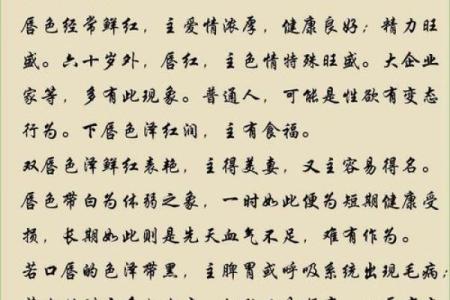 唇色经常鲜红，主爱情浓厚，健康良好；精力旺
盛。六十岁外，唇红，主色情特殊旺盛。大企业
家等，多有此现象。普通人，可能是性欲有变态
行为。下唇色泽红润，主有食福。
双唇色泽鲜红表艳，主得美妻，又主容易得名。
唇色带白为体弱之象，一时如此便为短期健康受
损，长期如此则是先天血气不足，难有作为。
若口唇的色泽带黑，主脾胃或呼吸系统出现毛病；